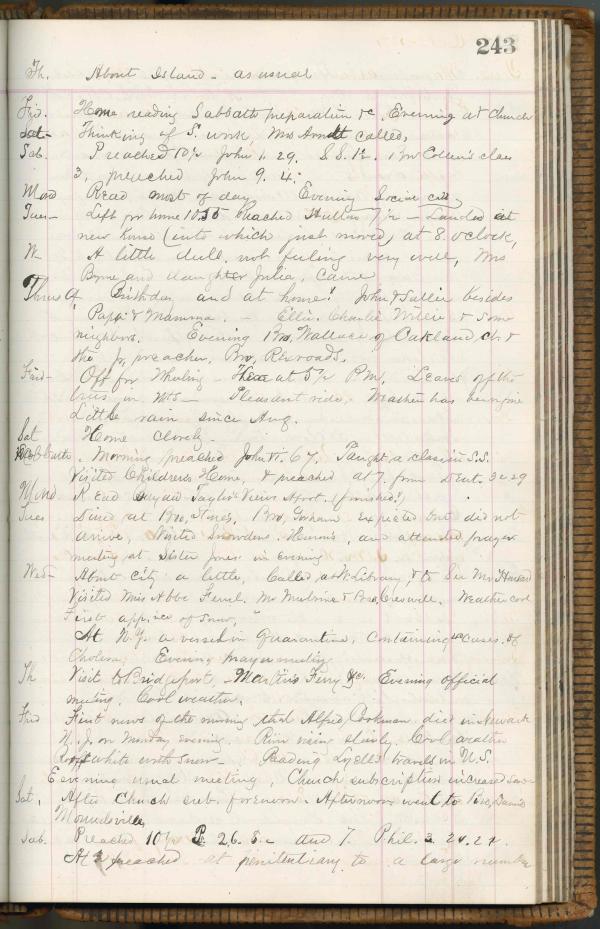 243
Th. About Island - as usual
Frid. Home reading Sabbath preparation &c. Evening at Church
Sat- Thinking of S. work, Mrs Arndt called,
Sab. Preached 10½ John 1. 29. S.S. 1½. Bro class
3, preached John 9. 4.
Mond Read most of day, Evening Social
Tues- Left for home 10.35 Reached 7½ - Landed at
new home (into which just moved) at 8. o'clock,
W A little dull, not feeling very well, Mrs
Byrne and daughter Julia, came
Thurs Birthday and at home! John & Sallie besides
Papa & Mamma. - Ellie. Charlie Willie & some
neighbors. Evening Bro, Wallace of Oakland, ch. &
the Jr, preacher, Bro,
Frid- Off for Wheeling - There at 5½ P.M. Leaves off the
trees in Mts - Pleasant ride, Weather has been fine
Little rain since Aug.
Sat Home closely -
Sabbath. Morning preached John VI. 67. Taught a class in S.S.
Visited Childrens Home, & preached at 7. from Deut. 32 29
Mond Read Bayard Taylor's Views Afoot. (finished!)
Tues Dined at Bro, Jones. Bro, expected but did not
arrive, Visited Snowdens. and attended prayer
meeting at Sister Jones in evening
Wed- About city a little, Called at W. Library, & to See Mrs
Visited Miss Abbe Mr & Bro, Creswell. Weather cool
First app,nce of Snow,
At N.Y. a vessel in Quarantine, containing cases of
Cholera, Evening prayer meeting
Th Visit to Bridgeport, Martins Ferry &c. Evening official
meeting. Cool weather.
Frid First news of the morning that Alfred Cookman died in Newark
N.J. on Monday evening. River rising slowly. Cool weather
Roofs white with snow - Reading Lyell's travels in U.S.
Evening usual meeting, Church subscription increased
Sat, After Church sub. forenoon - Afternoon went to Bro,
Moundsville,
Sab. Preached 10½ P. 26. 8. and 7. Phil. 3. 20. 21.
At 2 preached at penitentiary to a large number